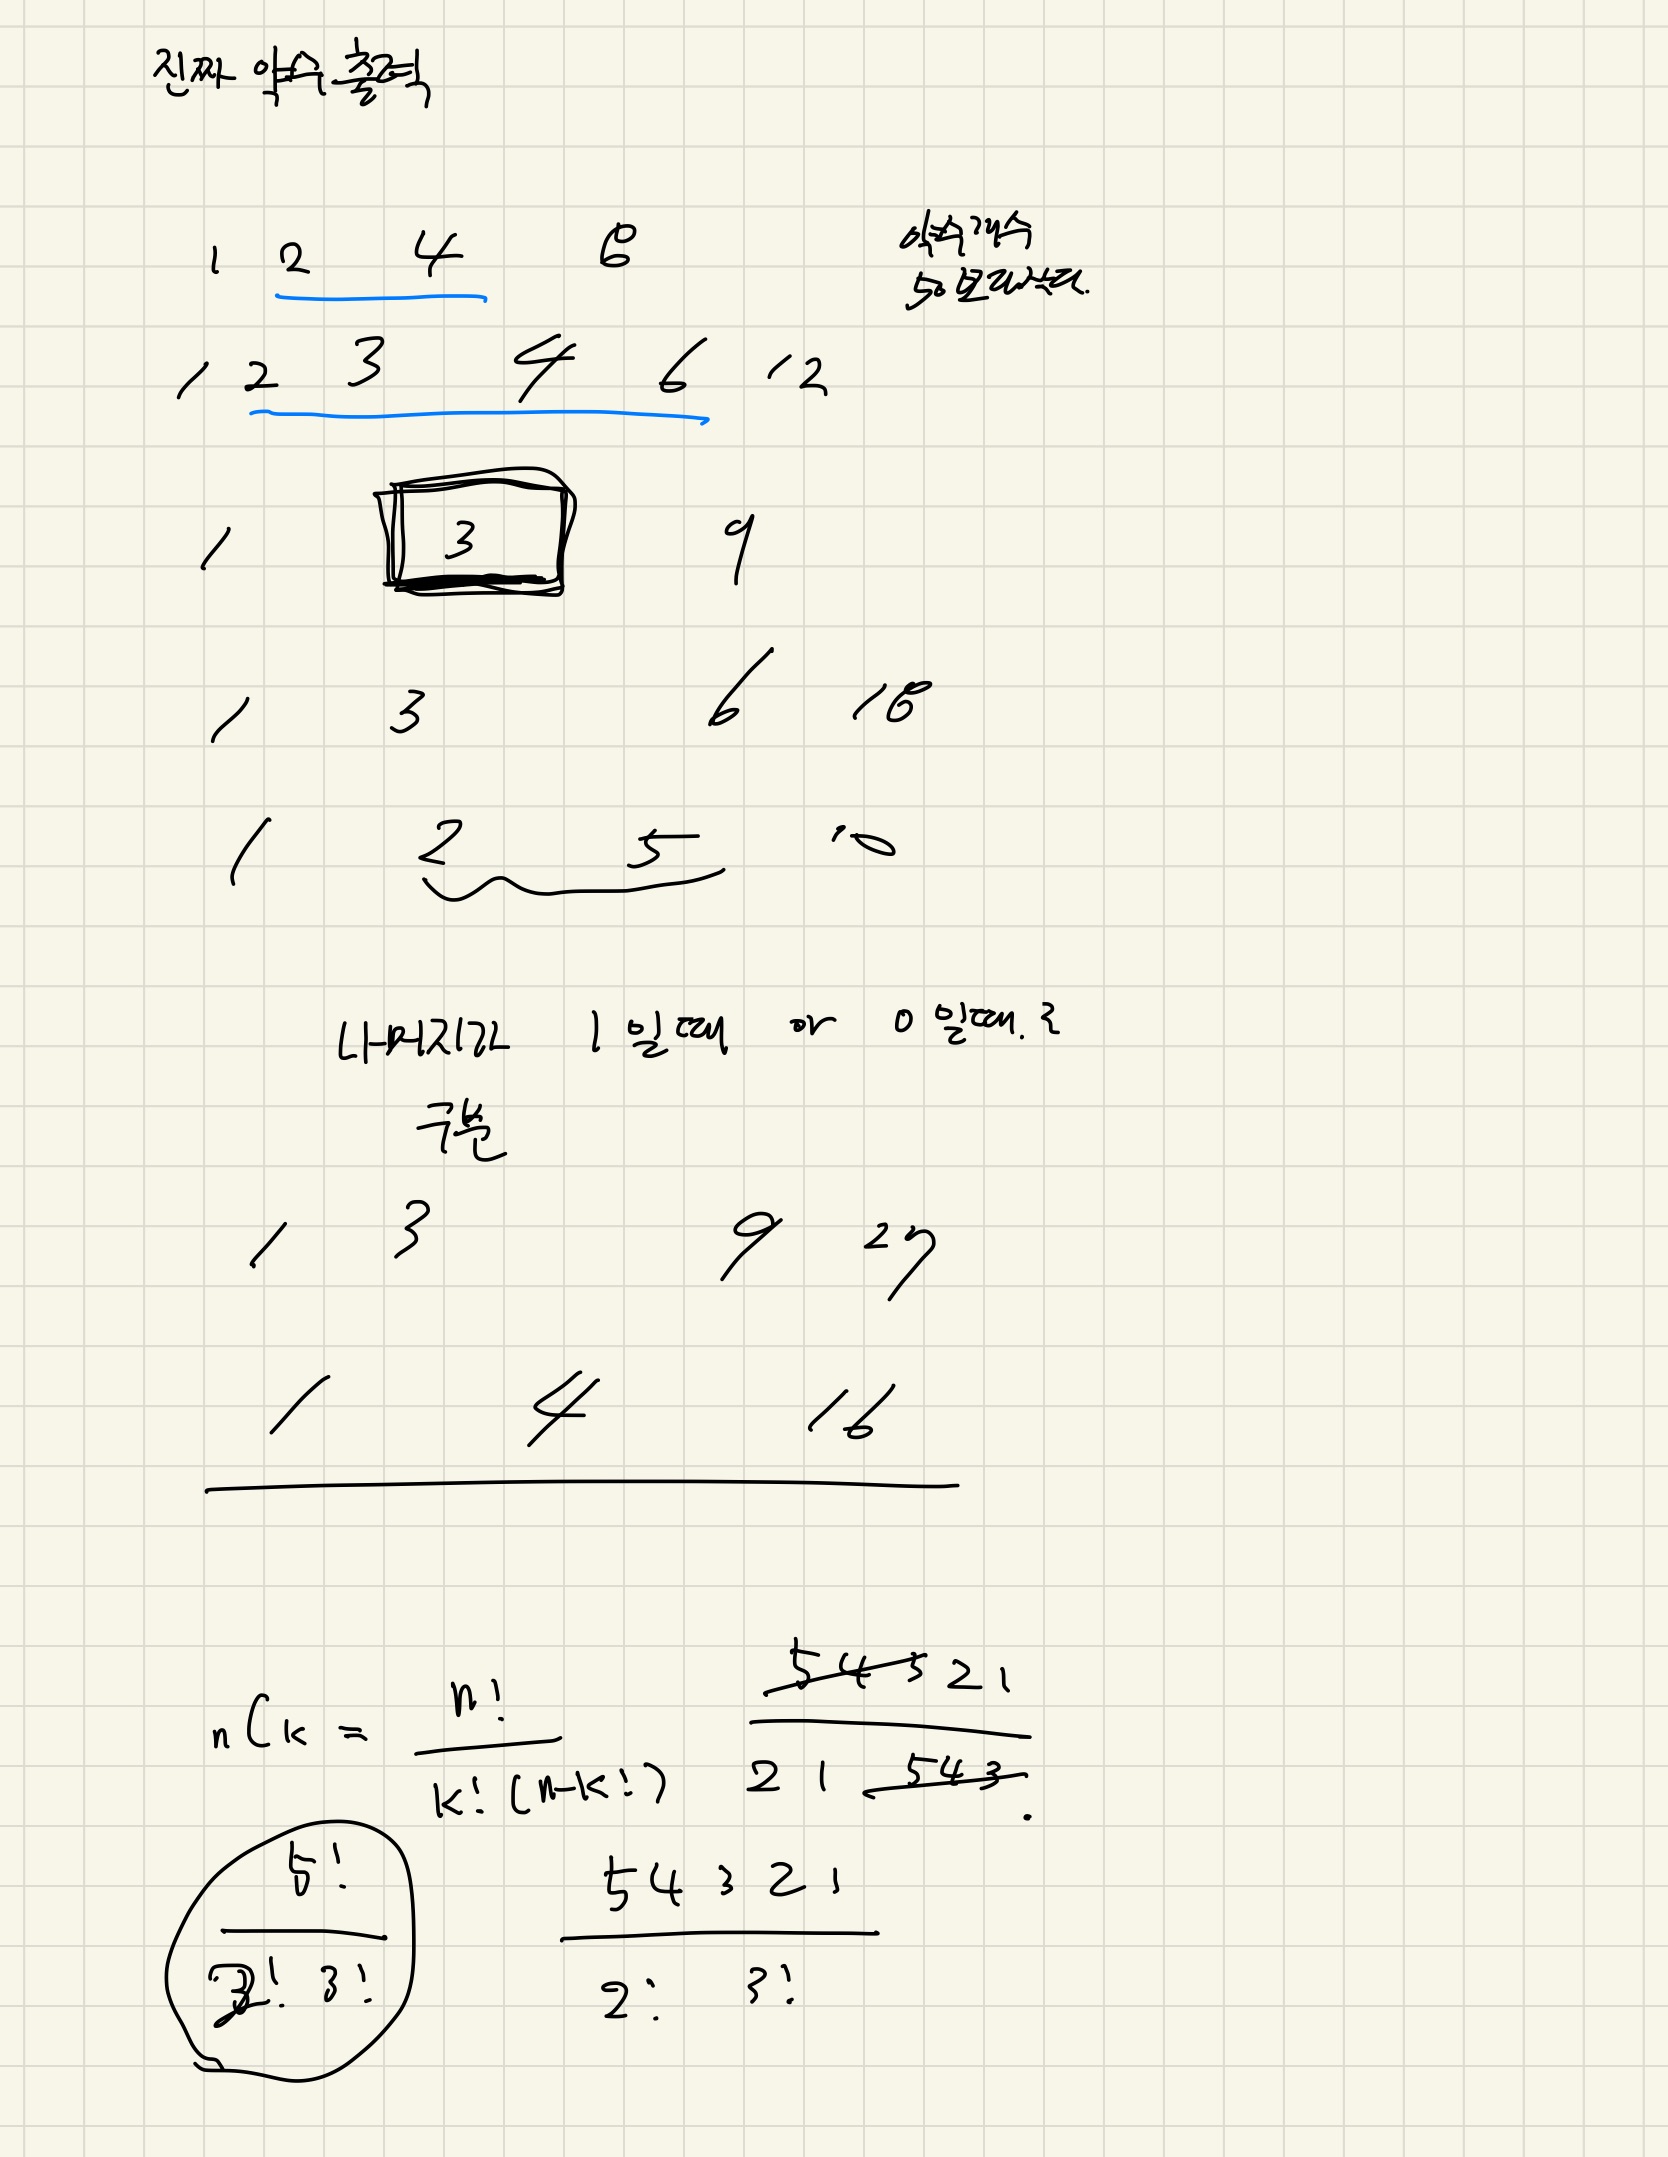 진짜 약수 출력
1 2 4 8
약수개수
50보다작다.
1 2 3 4 6 12
1 3 9
1 3 6 18
1 2 5 10
나머지가 1일때 or 0일때.로
구분
1 3 9 27
1 4 16
nCk = n! / k! (n-k!)
5 4 3 2 1 / 2 1 5 4 3 .
5! / 2! 3!
5 4 3 2 1 / 2! 3!